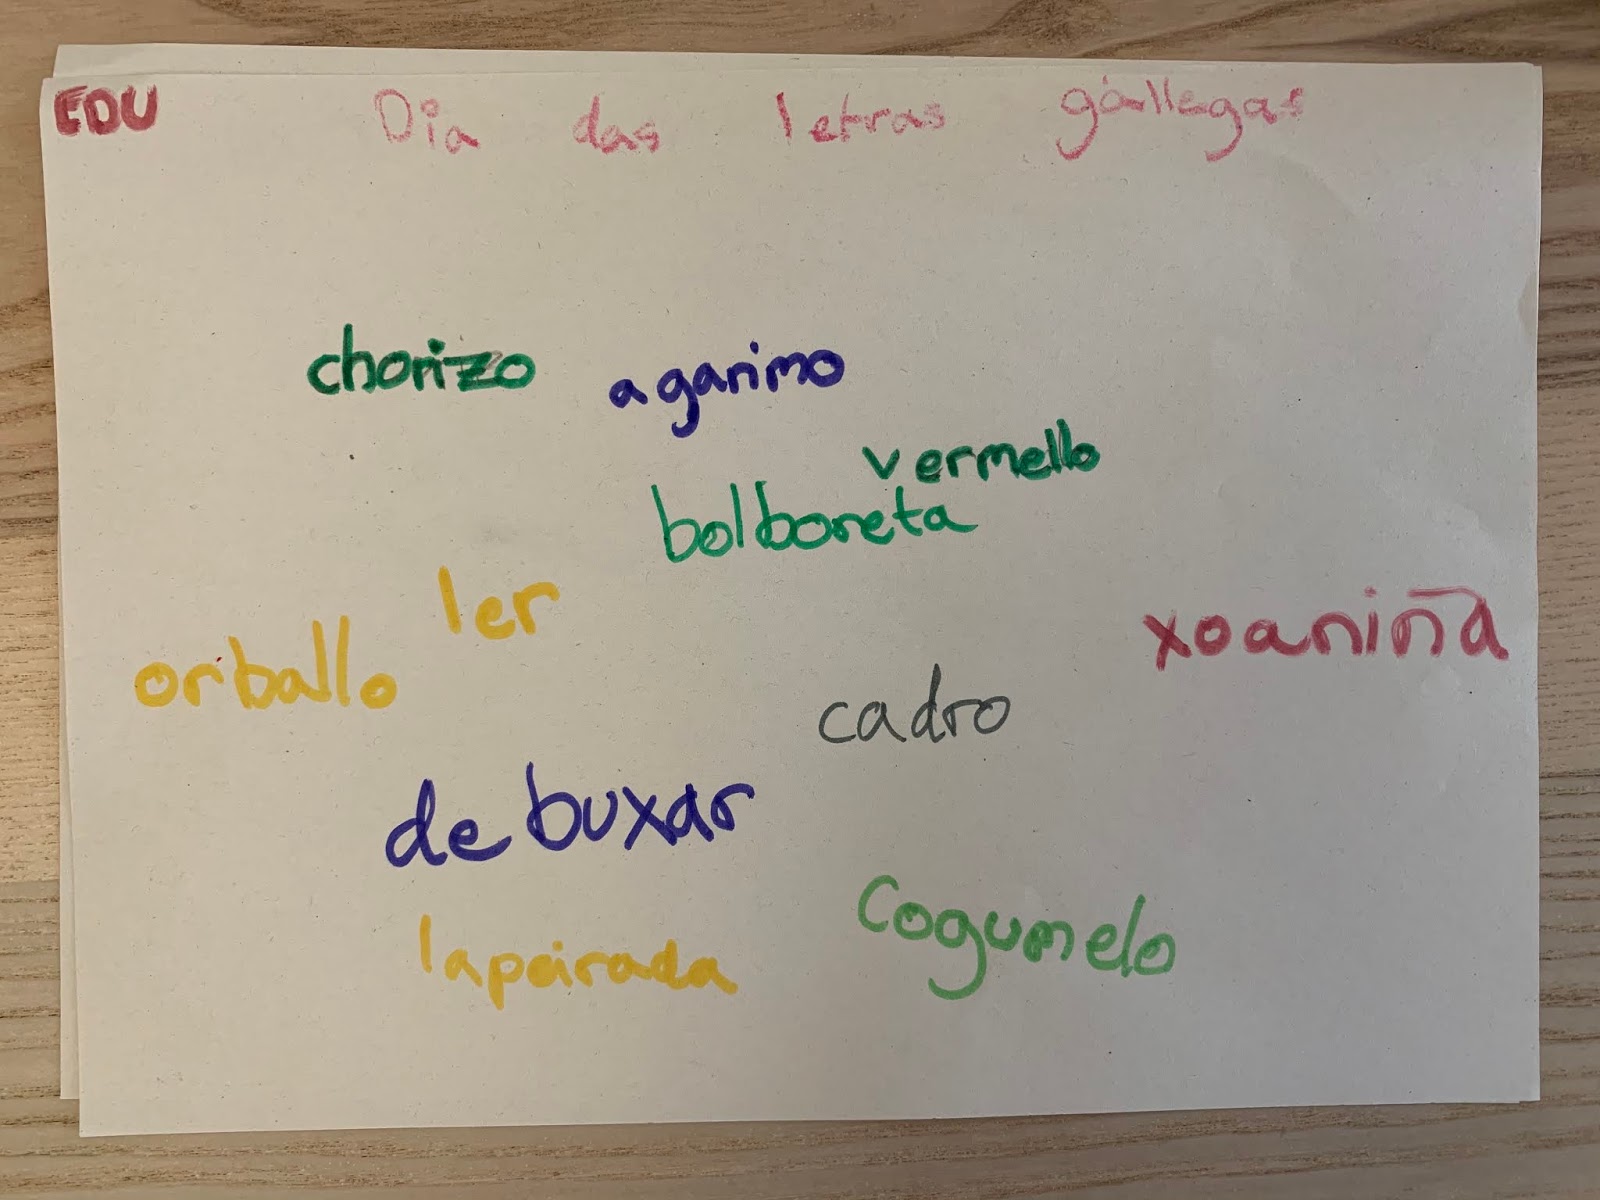 EDU Dia das letras gallegas
chorizo agarimo
vermello
bolboreta
ler
xoaniña
orballo
cadro
debuxar
lapeirada
Cogumelo